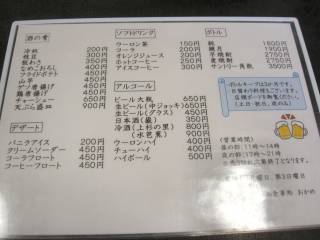 酒の肴
冷奴 200円
枝豆 300円
板わさ 350円
なめこおろし 350円
フライドポテト 400円
山芋 400円
ゲソ唐揚げ 450円
鶏唐揚げ 450円
チャーシュー 650円
天ぷら盛 900円
デザート
バニラアイス 200円
クリームソーダー 450円
コーラフロート 450円
コーヒーフロート 450円
ソフトドリンク
ウーロン茶 150円
コーラ 200円
オレンジジュース 200円
ホットコーヒー 250円
アイスコーヒー 300円
アルコール
ビール大瓶
生ビール(中ジョッキ)
生ビール(グラス) 450円
日本酒(巌) 350円
冷酒(上杉の里) 800円
(水芭蕉) 900円
ウーロンハイ 400円
チューハイ 400円
ハイボール 500円
ボトル
1600円
1900円
芋焼酎 2750円
麦焼酎 2750円
サントリー角瓶 3500円
ボトルキープは3か月です。
(営業時間)
昼の部:11時~14時
夜の部:17時~21時
終了となります。
曜日、第3日曜日
お食事処 おかめ